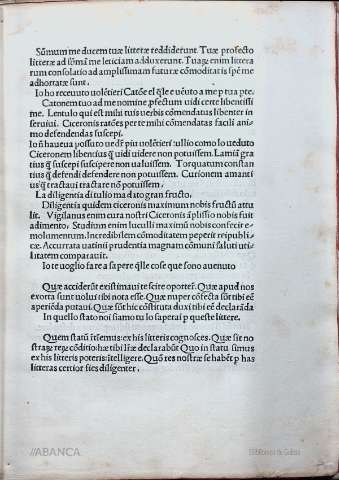 Sūmum me ducem tuæ litteræ reddiderunt. Tuæ profecto
litteræ ad sōmā me leticiam adduxerunt. Tuarꝝ enim littera
rum consolatio ad amplissimam futuræ cōmoditatis spē me
adhortatæ sunt.
Io ho receuuto uolētieri Catōe el q̄le e uēuto a me ꝑ tua pte.
Catonem tuo ad me nomine ꝓfectum uidi certe libenissi
me. Lentulo qui est mihi tuis uerbis cōmendatus libenter in
seruiui. Ciceronis ratōes per te mihi cōmendatas facili ani⸗
mo defendendas suscepi.
Io nō haueua possuto uedē piu uolētieri tullio como lo ueduto
Ciceronem libenrius q̄ uidi uidere non potuissem. Lamiā gra
tius q̄ suscepi suscipere non ualuissem. Torquatum constan
tius q̄ defendi defendere non potuissem. Curionem amanti
us q̄ tractaui tractare nō potuissem.
La diligentia di tulio ma dato gran fructo.
Diligentia quidem ciceronis maximum nobis fructū attu
lit. Vigilanus enim cura nostri Ciceronis āplissio nobis fuit
adimento. Studium enim luculli maximū nobis confecit e⸗
molumentum. Incredibilem cōmoditatem peperit reipubli⸗
cæ. Accurrata uatinii prudentia magnam cōmuni saluti uti⸗
litatem comparauit.
Io te uoglio fare a sapere q̄lle cose que sono auenuto
Quæ acciderūt existimaui te scire oportē. Quæ apud nos
exorta sunt uolui tibi nota esse. Quæ nuper cōfecta sūt tibi eē
aperiēda putaui. Quæ sūt hic cōstituta duxi tibi eē declarāda
In quello stato noi siamo tu lo saperai ꝑ queste littere.
Quem statū itēemus: ex his litteris cognosces. Quæ sit no
strarꝝ rerꝝ cōditio: hæ tibi lræ declarabūt Quo in statu simus
ex his litteris poteris: ītelligere. Quō res nostræ se habēt ꝑ has
litteras certior fies diligenter.
//ABANCA
Biblioteca de Galicia